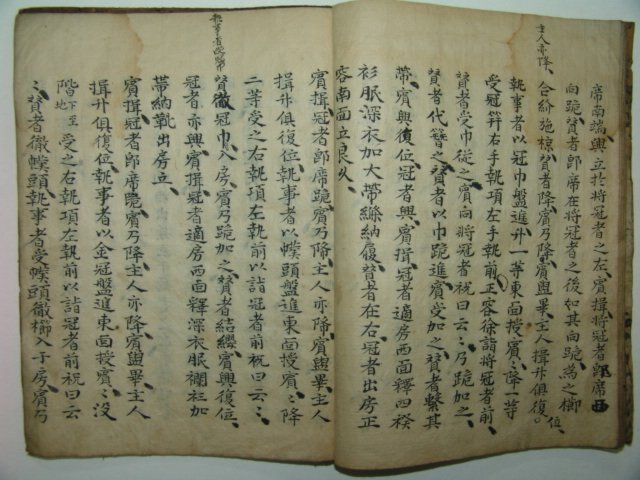 席南端興立於將冠者之左賓揖將冠者卽席西
向跪贊者卽席在將冠者之後如其向跪爲之櫛
合紒施掠贊者降賓乃降賓盥畢主人揖升俱復位
主人亦降
執事者以冠巾盤進升一等東面授賓賓降一等
受冠筓右手執項左手執前正容徐詣將冠者前
贊者受巾從之賓向將冠者祝曰云〻乃跪加之
贊者代簪之贊者以巾跪進賓受加之贊者繫其
帶賓興復位冠者興賓揖冠者適房西面釋四䙆
衫服深衣加大帶絲納履贊者在右冠者出房正
容南面立良久
賓揖冠者卽席跪賓乃降主人亦降賓盥畢主人
揖升俱復位執事者以幞頭盤進東面授賓〻降
二等受之右執項左執前以詣冠者前祝曰云〻
贊徹冠巾入房賓乃跪加之贊者結纓賓興復位
冠者亦興賓揖冠者適房西面釋深衣服襴衫加
帶納靴出房立
賓揖冠者卽席跪賓乃降主人亦降賓盥畢主人
揖升俱復位執事者以金冠盤進東面授賓〻沒
階下至地受之右執項左執前以詣冠者前祝曰云
〻贊者徹幞頭執事者受幞頭徹櫛入于房賓乃